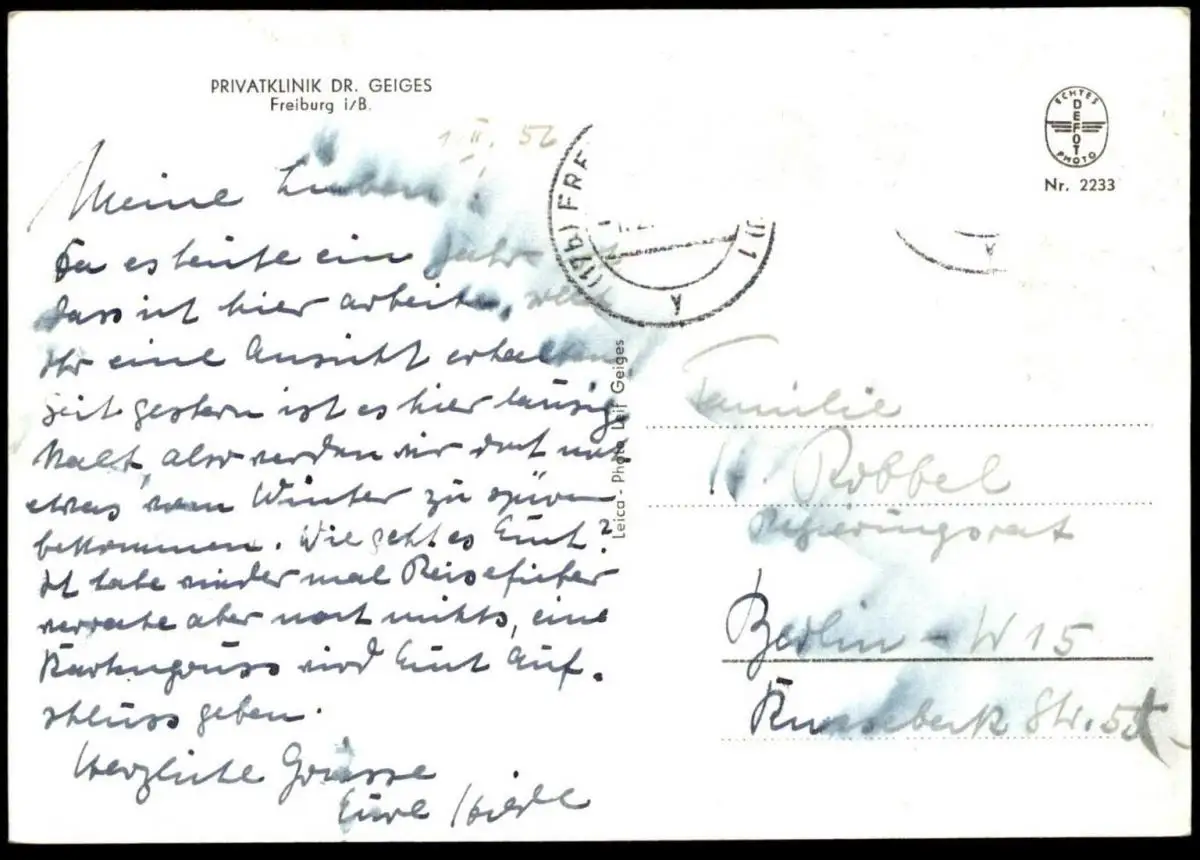 PRIVATKLINIK DR. GEIGES
Freiburg i/B.
ECHTES
DEFOT
PHOTO
Nr. 2233
1. II. 52
(17b) FRE
Meine Lieben!
Da es heute ein Jahr ist
dass ich hier arbeite,
Ihr eine Ansicht erhalten
seit gestern ist es hier lausig
kalt, also werden wir doch noch
etwas vom Winter zu spüren
bekommen. Wie geht es Euch?
Ich habe wieder mal Reisefieber
verrate aber noch nichts, eine
Kartengruss wird Euch Auf-
schluss geben.
Herzliche Grüsse
Eure
Leica - Photo Leif Geiges
Familie
Robbel
Regierungsrat
Berlin - W 15
Str.